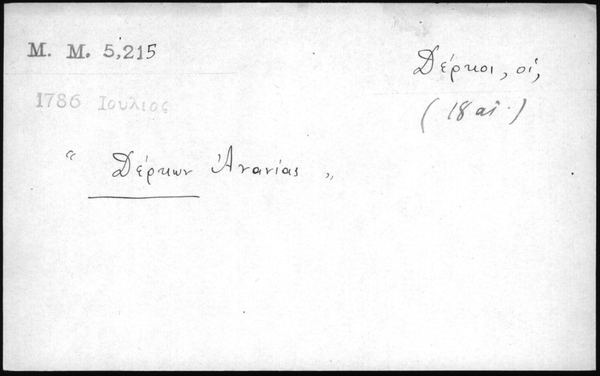 M. M. 5,215
Δέρκοι, οἱ,
1786 Ιουλιος
(18 αἰ.)
“ Δέρκων Ἀνανίας „